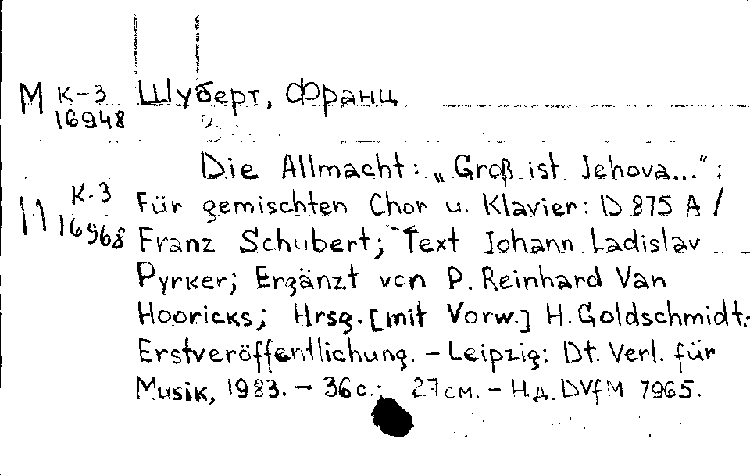 М К-3 Шуберт, Франц
16948
Die Allmacht: „Groß ist Jehova...":
К-3 Für gemischten Chor u. Klavier: D 875 A /
П 16968 Franz Schubert; Text Johann Ladislav
Pyrker; Ergänzt von P. Reinhard Van
Hooricks; Hrsg. [mit Vorw.] H. Goldschmidt.-
Erstveröffentlichung. – Leipzig: Dt. Verl. für
Musik, 1983. – 36 с.; 27 см. – Н.д. DVfM 7965.